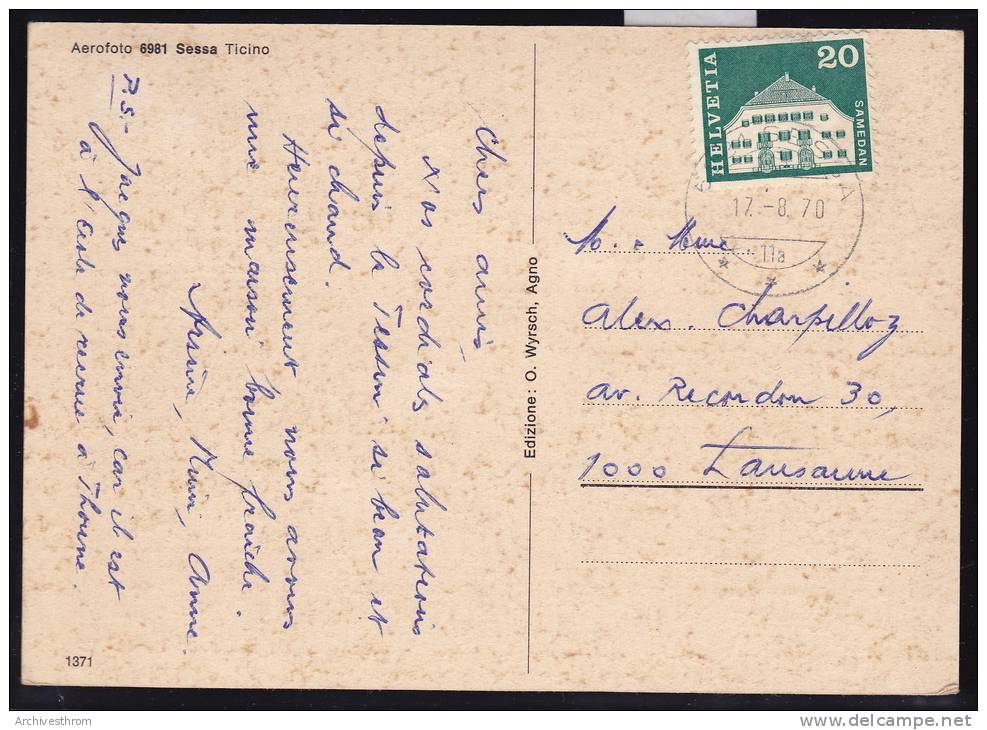 Aerofoto 6981 Sessa Ticino
Chers amis,
Nos cordiales salutations
depuis le Tessin si beau et
si chaud.
Heureusement nous avons
une maison bonne fraiche.
Mimi, Anne.
P.S.- Jacques nous envie, car il est
à l'école de recrue à Thoune.
1371
Edizione: O. Wyrsch, Agno
HELVETIA
20
SAMEDAN
17.-8.70
11a
M. & Mme
Alex. Charpilloz
av. Recordon 30,
1000 Lausanne
Archivesthrom
www.delcampe.net